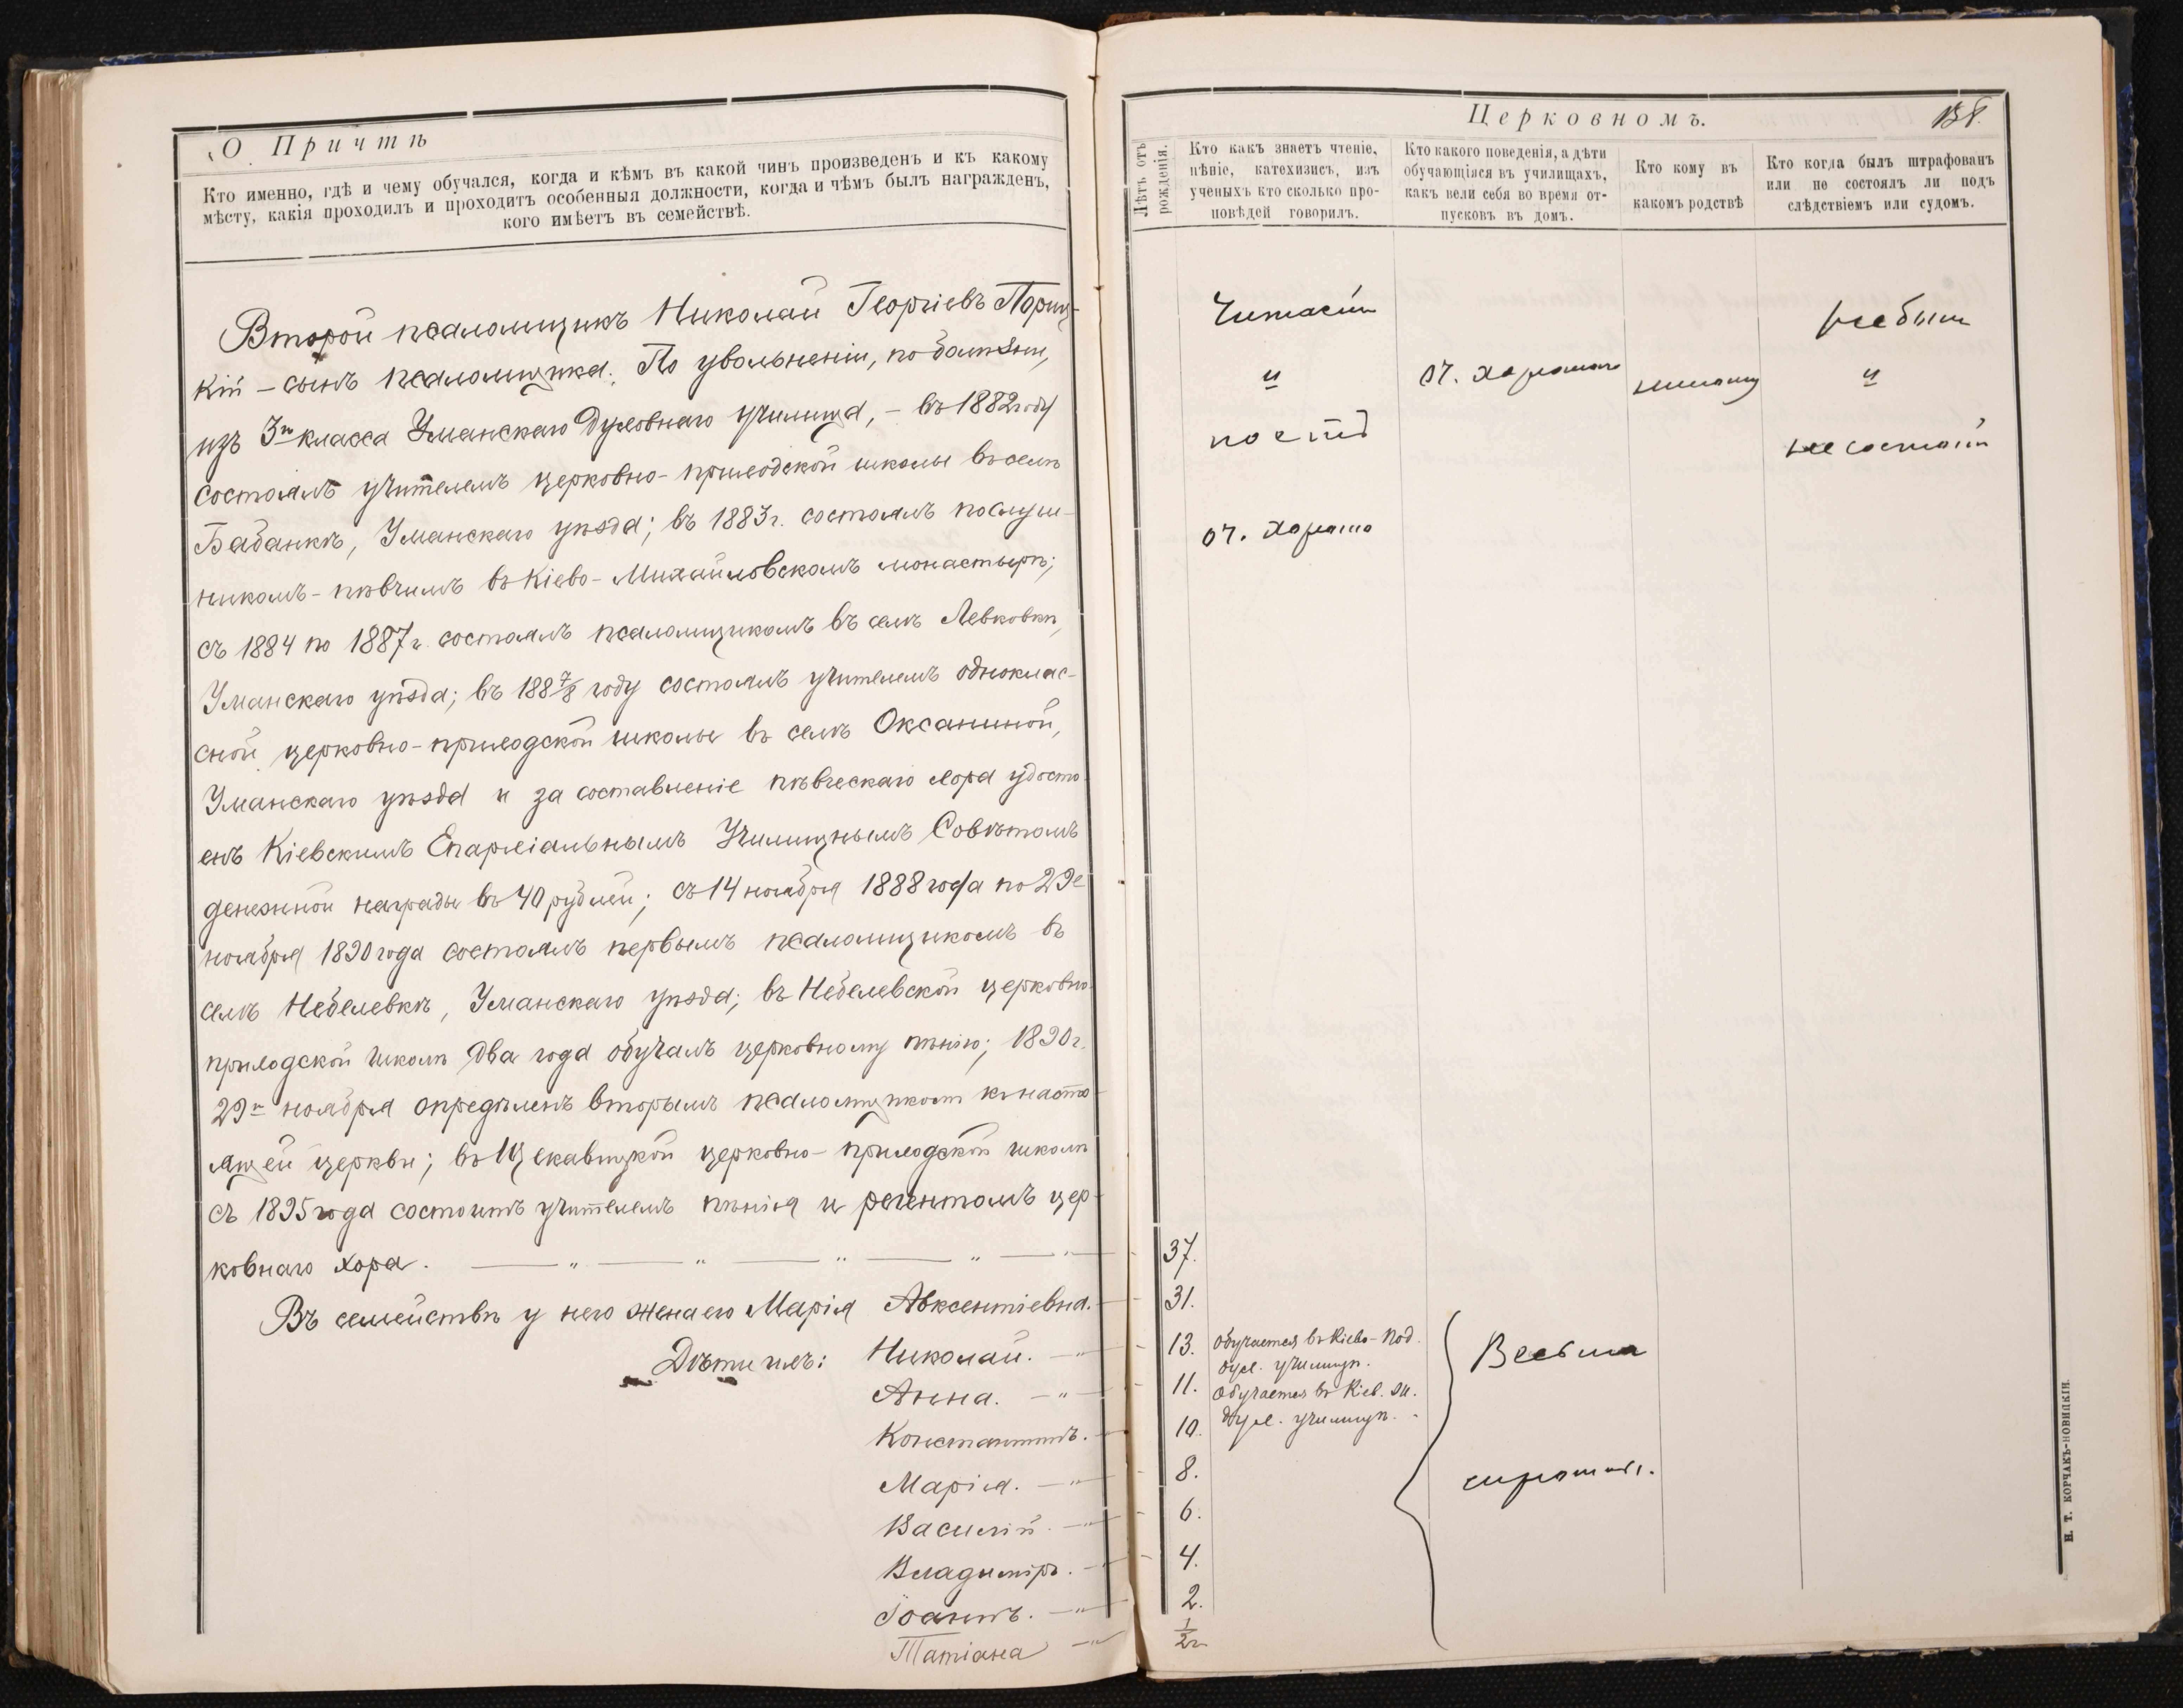 О Причтѣ
Кто именно, гдѣ и чему обучался, когда и кѣмъ въ какой чинъ произведенъ и къ какому
мѣсту, какія проходилъ и проходитъ особенныя должности, когда и чѣмъ былъ награжденъ,
кого имѣетъ въ семействѣ.
Второй псаломщикъ Николай Георгіевъ Пориц-
кій – сынъ псаломщика. По увольненіи, по болѣзни,
изъ 3го класса Уманскаго Духовнаго училища, – въ 1882 году
состоялъ учителемъ церковно-приходской школы въ селѣ
Бабанкѣ, Уманскаго уѣзда; въ 1883 г. состоялъ послуш-
никомъ-пѣвчимъ въ Кіево-Михайловскомъ монастырѣ;
съ 1884 по 1887 г. состоялъ псаломщикомъ въ селѣ Левковки,
Уманскаго уѣзда; въ 188 7/8 году состоялъ учителемъ одноклас-
сной церковно-приходской школы въ селѣ Оксаниной,
Уманскаго уѣзда и за составленіе пѣвческаго хора удосто-
енъ Кіевскимъ Епархіальнымъ Училищнымъ Совѣтомъ
денежной награды въ 40 рублей; съ 14 ноября 1888 года по 29е
ноября 1890 года состоялъ первымъ псаломщикомъ въ
селѣ Небелевкѣ, Уманскаго уѣзда; въ Небелевской церковно-
приходской школѣ два года обучалъ церковному пѣнію; 1890 г.
29го ноября опредѣленъ вторымъ псаломщикомъ къ насто-
ящей церкви; въ Щекавицкой церковно-приходской школѣ
съ 1895 года состоитъ учителемъ пѣнія и регентомъ цер-
ковнаго хора.
Въ семействѣ у него жена его Марія Авксентіевна.
Дѣти ихъ: Николай.
Анна.
Константинъ.
Марія.
Василій.
Владиміръ.
Іоаннъ.
Татіана
Церковномъ.
Лѣтъ отъ рожденія.
Кто какъ знаетъ чтеніе,
пѣніе, катехизисъ, изъ
ученыхъ кто сколько про-
повѣдей говорилъ.
Кто какого поведенія, а дѣти
обучающіяся въ училищахъ,
какъ вели себя во время от-
пусковъ въ домъ.
Кто кому въ
какомъ родствѣ
Кто когда былъ штрафованъ
или не состоялъ ли подъ
слѣдствіемъ или судомъ.
Читаетъ
и
поетъ
оч. хорошо
оч. хорошаго
никому
не былъ
и
не состоитъ
37.
31.
13. обучается въ Кіево-Под.
дух. училищѣ.
11. обучается въ Кіев.
дух. училищѣ.
10.
8.
6.
4.
2.
1/2 г.
Весьма
хорошаго.
Н. Т. КОРЧАКЪ-НОВИЦКІЙ.